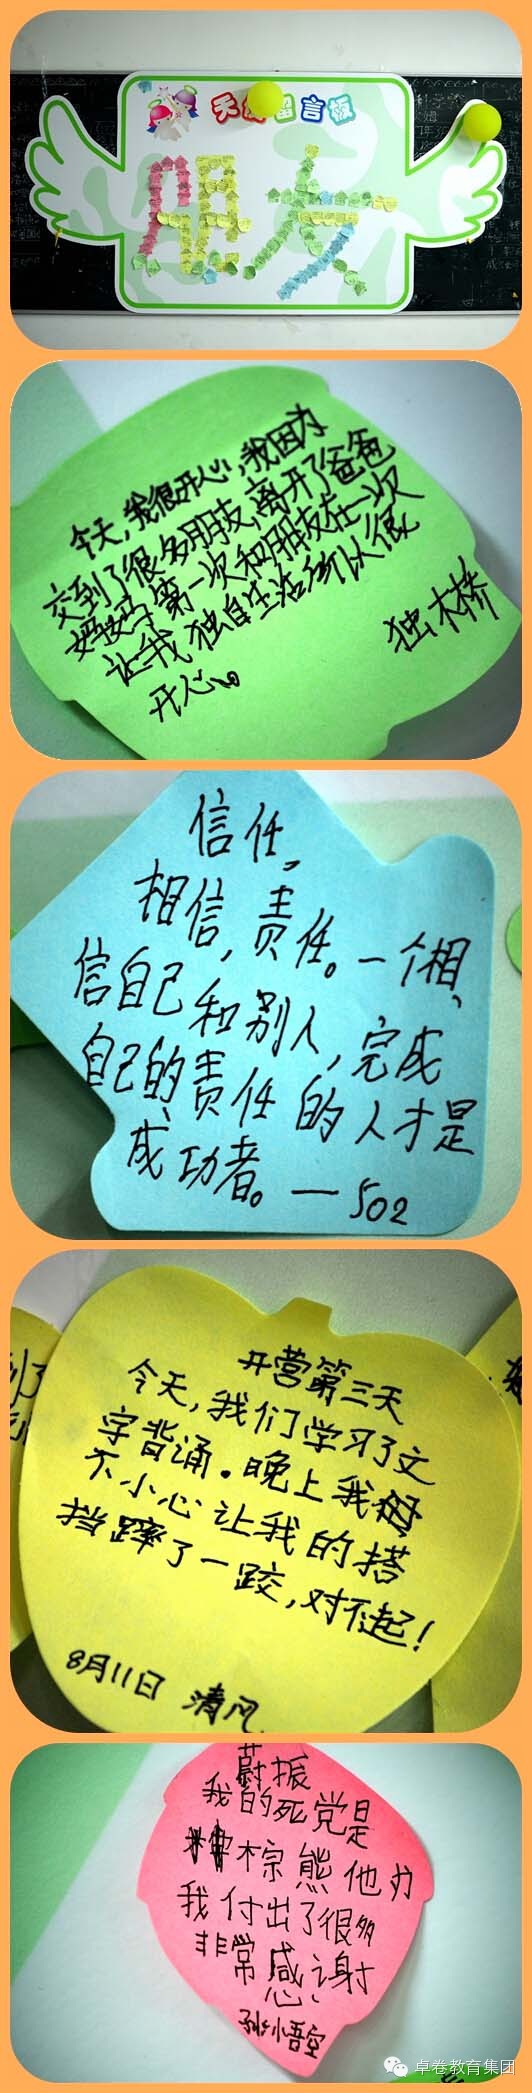 天使留言板
朋友
今天,我很开心,我因为
交到了很多朋友,离开了爸爸
妈妈,第一次和朋友在一次
让我独自生活所以很
开心。
独木桥
信任,
相信,责任。一个相
信自己和别人,完成
自己的责任的人才是
成功者。—502
开营第三天
今天,我们学习了文
字背诵。晚上我
不小心让我的搭
挡蹿了一跤,对不起!
8月11日 清风
蔚振
我的死党是
棕熊他为
我付出了很多
非常感谢
孙小吾空
卓卷教育集团